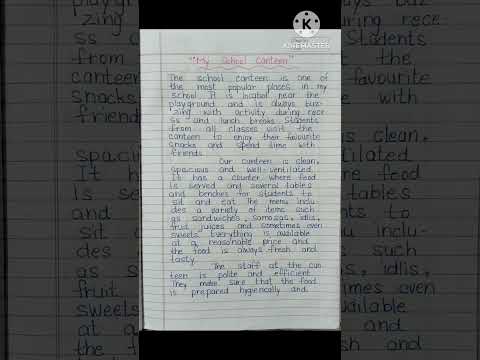 "My School Canteen"
The school canteen is one of
the most popular places in my
school It is located near the
playground and is always buz-
zing with activity during rece
ss and lunch breaks Students
from all classes visit the
canteen to enjoy their favourite
snacks and spend time with
friends
Our canteen is clean,
spacious and well-ventilated
It has a counter where food
is served and several tables
and benches for students to
sit and eat The menu inclu
des a variety of items such
as sandwiches, samosas, idlis,
fruit juices and sometimes even
sweets Everything is available
at a reasonable price and
the food is always fresh and
tasty
The staff at the can
teen is polite and efficient
They make sure that the food
is prepared hygienically and
K
KINEMASTER